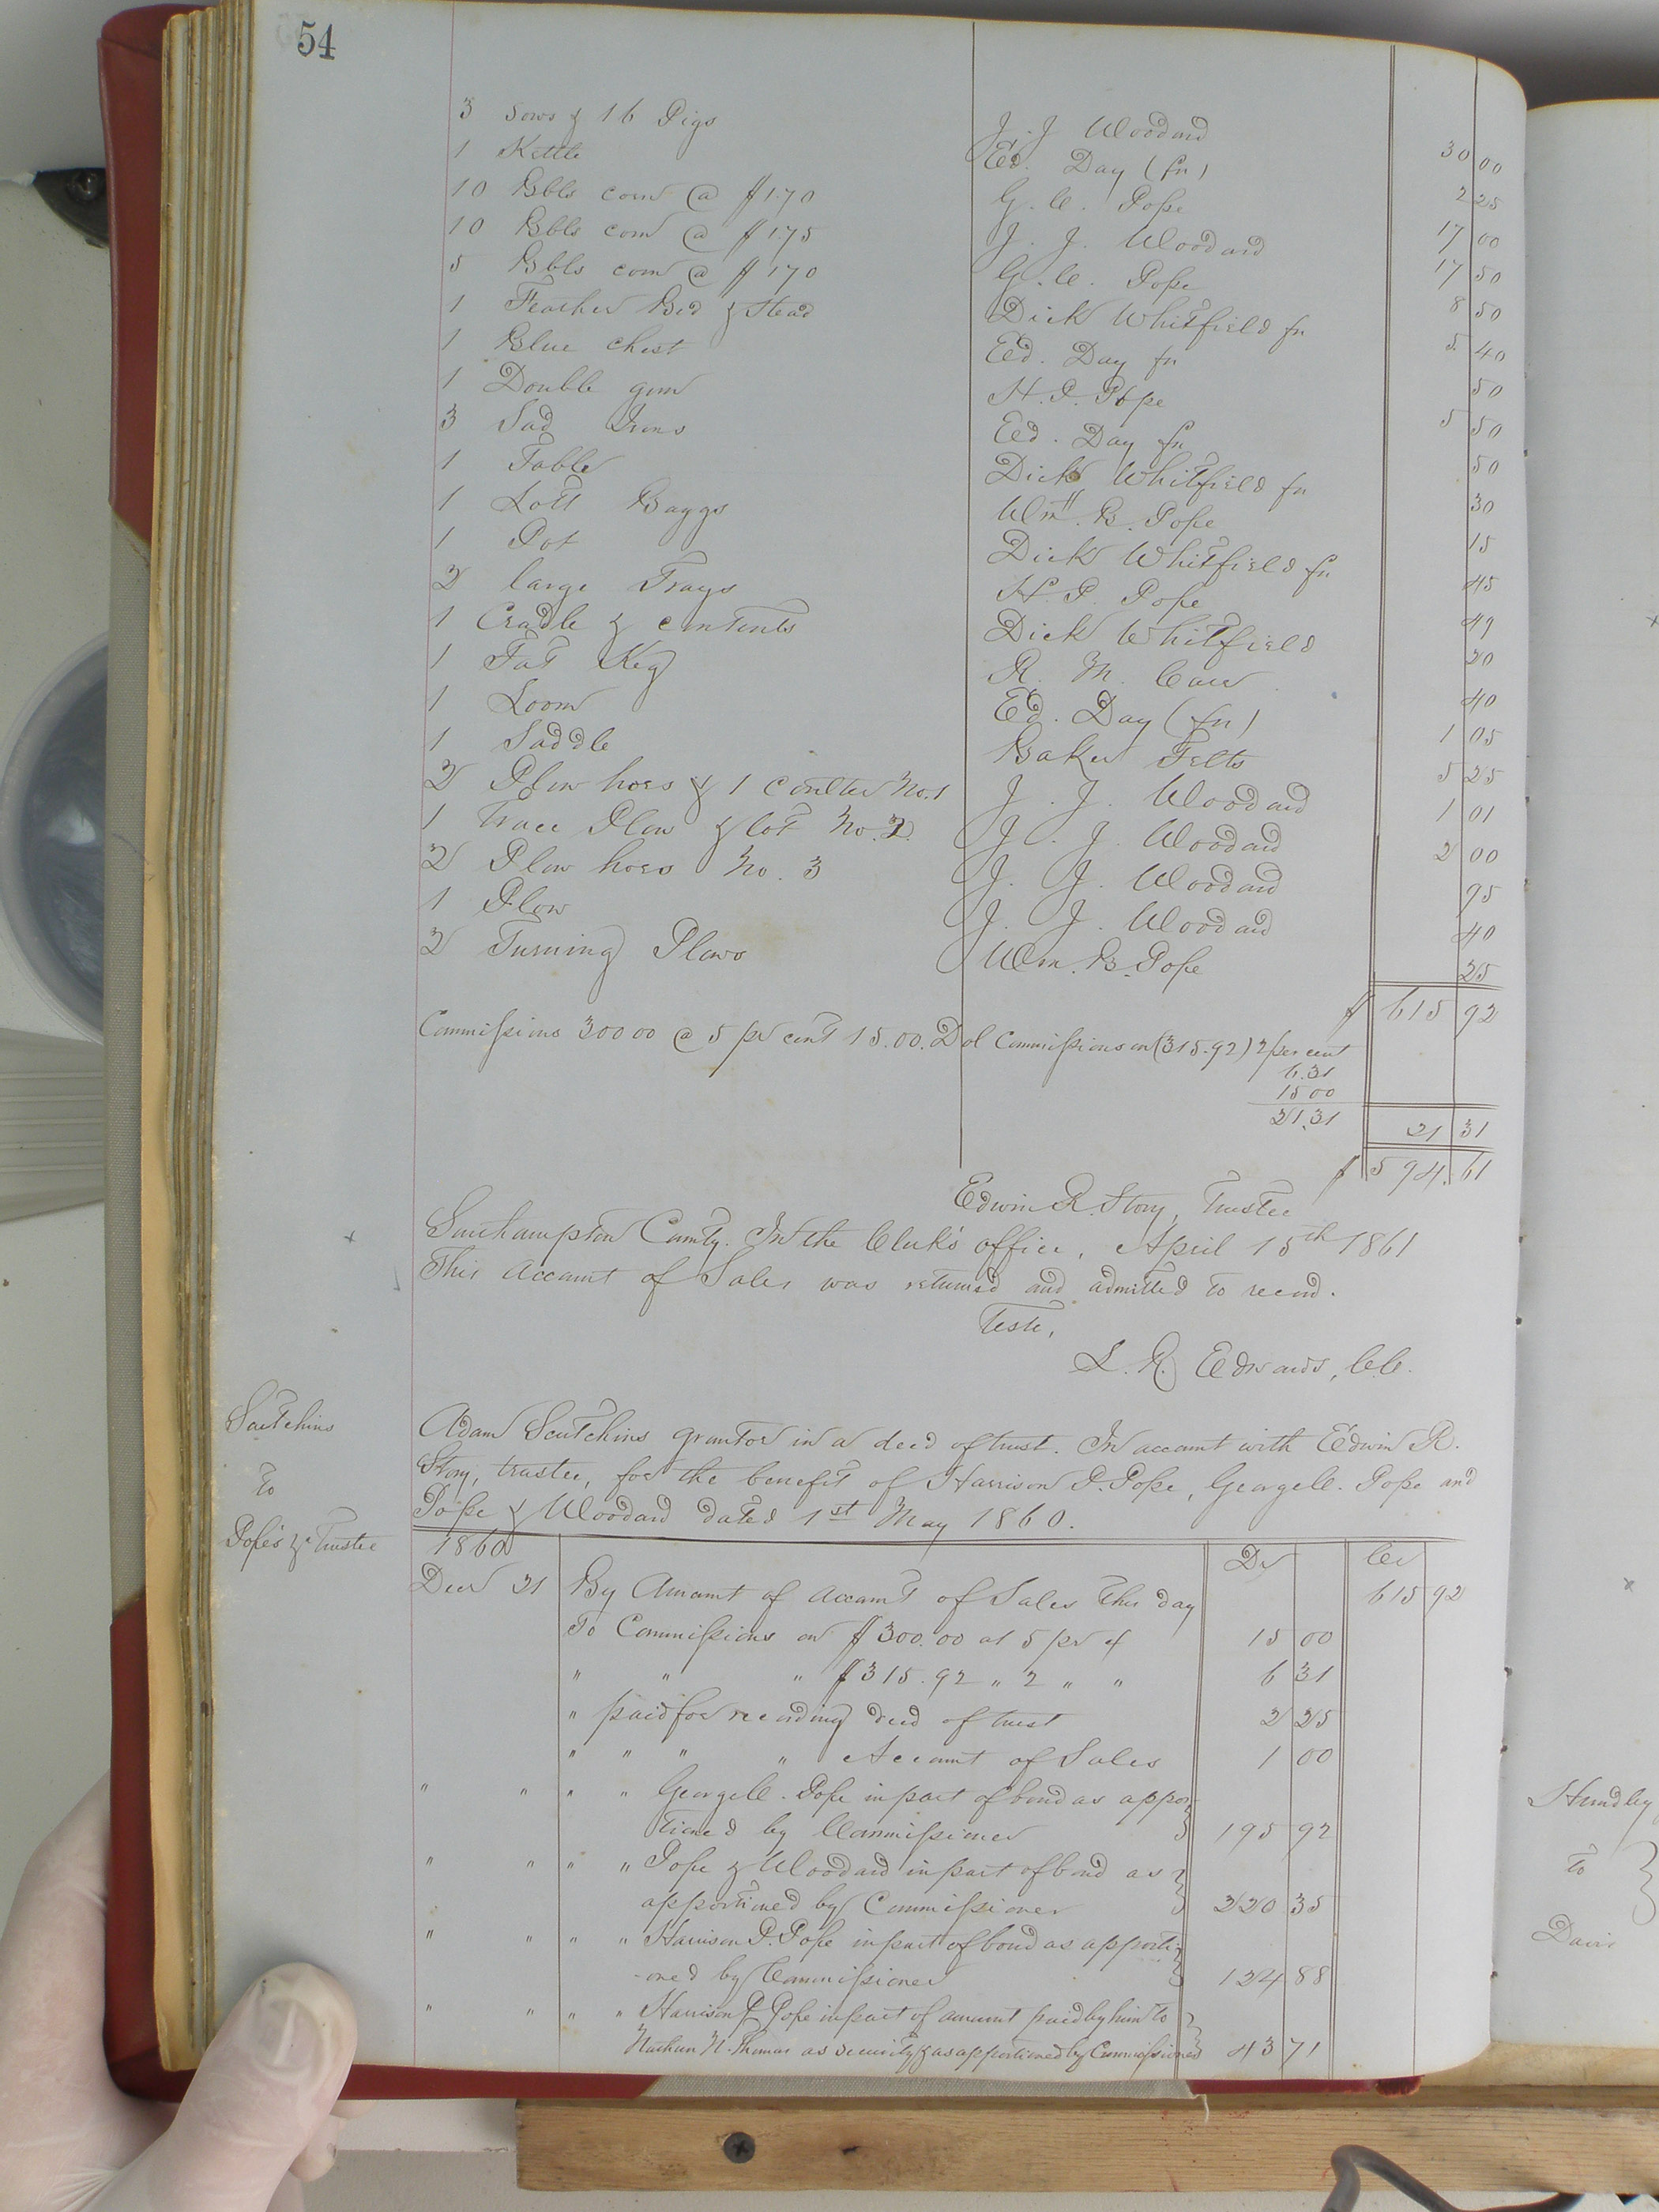 54
3 Sows & 16 Pigs J. J Woodard 30 00
1 Kettle Ed. Day (fn) 2 25
10 Bbls corn @ $1.70 G. C. Pope 17 00
10 Bbls corn @ $1.75 J. J. Woodard 17 50
5 Bbls corn @ $1.70 G. C. Pope 8 50
1 Feather Bed & Stead Dick Whitfield fn 5. 40
1 Blue Chest Ed. Day fn 50
1 Double gun H. P. Pope 5 50
3 Sad Irons Ed. Day fn 50
1 Table Dick Whitfield fn 30
1 Lott Baggs Wm. B. Pope 15
1 Pot Dick Whitfield fn 45
2 large Trays H. P. Pope 49
1 Cradle & contents Dick Whitfield 20
1 Fat Keg R. M. 40
1 Loom Ed. Day (fn) 1 05
1 Saddle Baker Felts 5 25
2 Plow hoes & 1 Coulter No. 1 J. J. Woodard 1 01
1 Trace Plow & lot No. 2. J. J. Woodard 2 00
2 Plow hoes No. 3 J. J. Woodard 95
1 Plow J. J. Woodard 40
2 Turning Plows Wm. B. Pope 25
$ 615 92
Commissions 300 00 @ 5 pr cent 15.00. Dol Commissions on (315.92) 2 per cent
6.31
15 00
21.31 21 31
$ 594. 61
Edwin R. Story, Trustee
Southampton County. In the Clerk's office, April 15th 1861
This Account of Sales was returned and admitted to record.
Teste,
L. R. Edwards, C.C.
Scutchins
to
Pope's &c Trustee
Adam Scutchins grantor in a deed of trust. In account with Edwin R.
Story, trustee, for the benefit of Harrison P. Pope, George C. Pope and
Pope & Woodard dated 1st May 1860.
1860 Dr Cr
Decr 21 By Amount of account of Sales this day 615 92
To Commissions on $300.00 at 5 pr ct 15 00
" " " $315.92 " 2 " " 6 31
" paid for recording deed of trust 2 25
" " " " Account of Sales 1 00
" " " " George C. Pope in part of bond as appor-
tioned by Commissioner 195 92
" " " " Pope & Woodard in part of bond as
apportioned by Commissioner 220 35
" " " " Harrison P. Pope in part of bond as apporti-
-oned by Commissioner 124 88
" " " " Harrison P. Pope in part of amount paid by him to
Nathan N. Thomas as security & as apportioned by Commissioner 43 71
Hundley
to
Davis